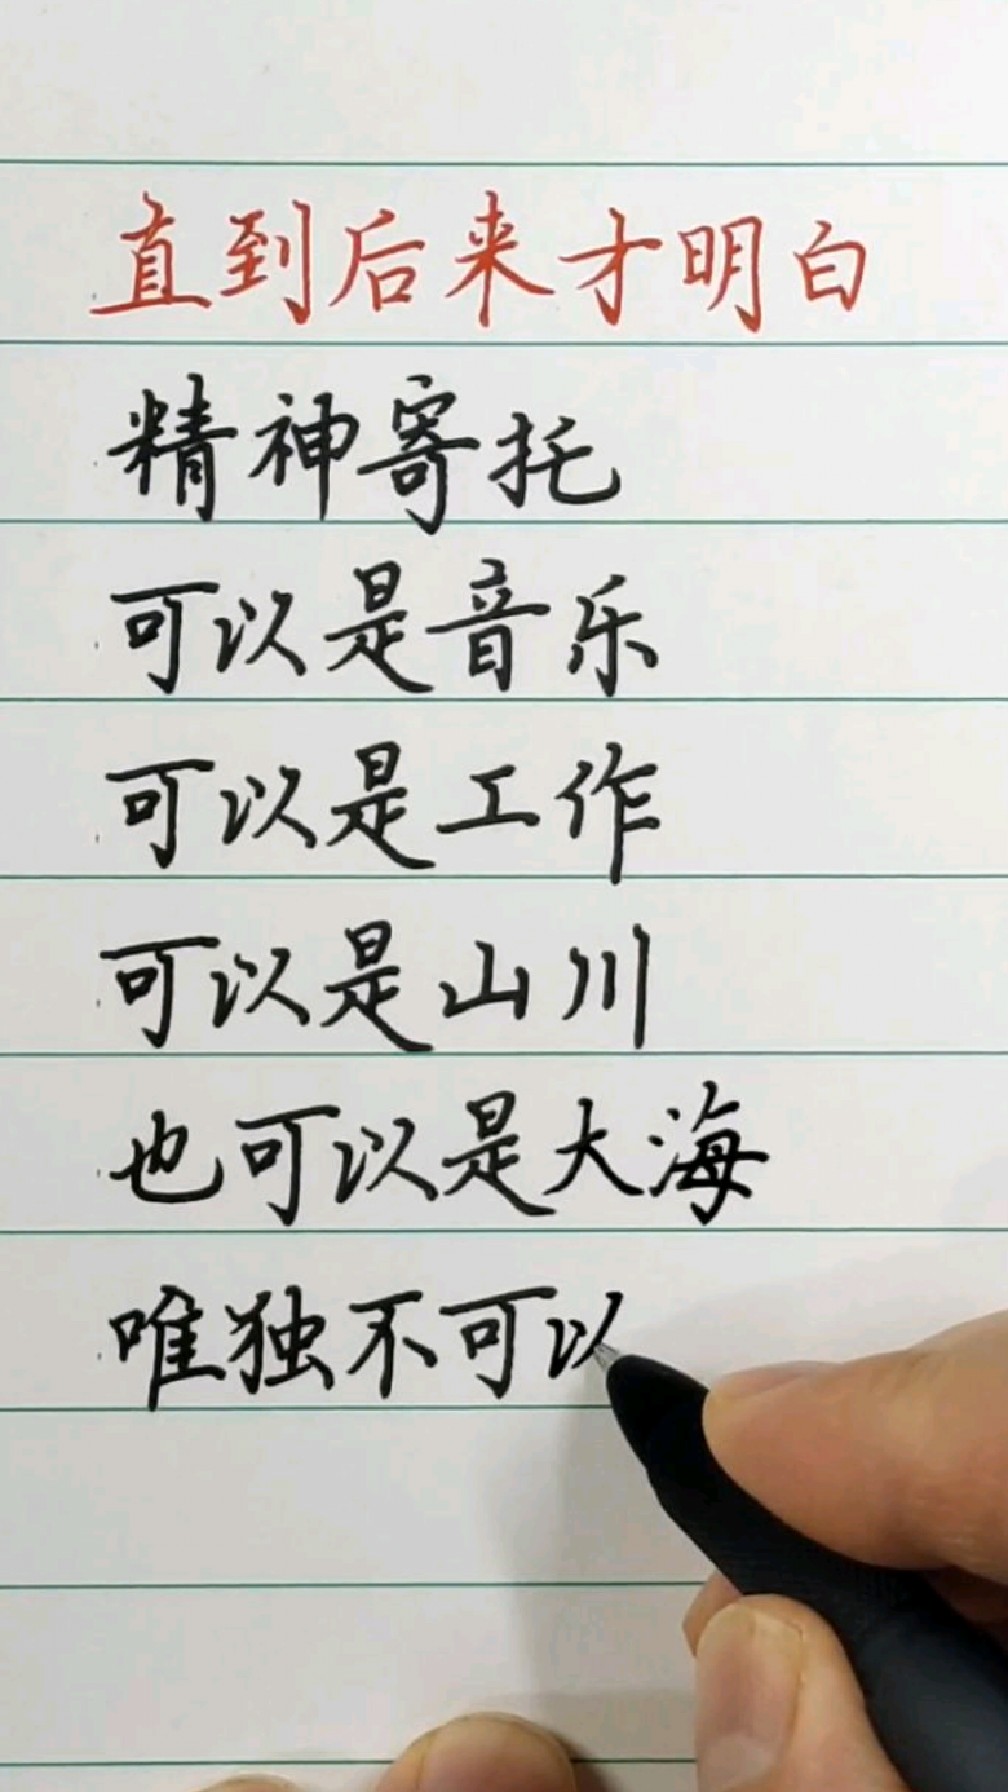 直到后来才明白
精神寄托
可以是音乐
可以是工作
可以是山川
也可以是大海
唯独不可以